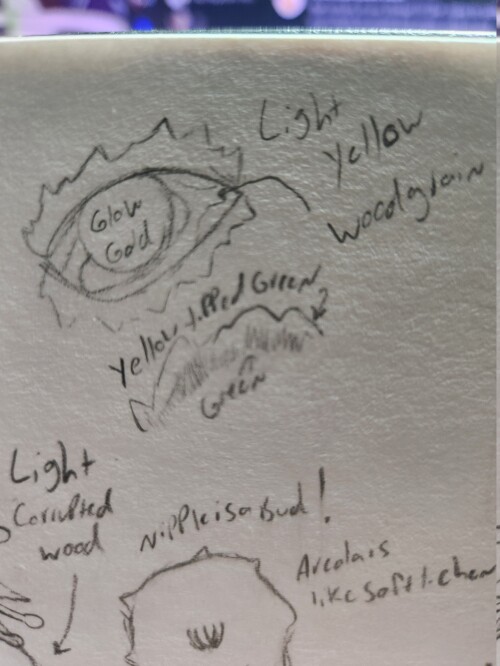 Light
Yellow
Woodgrain
Glow
Gold
Yellow tipped Green
Green
Light
Corrupted
wood
Nipple is a Bud!
Areola is
like soft lichen